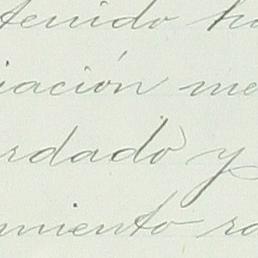 tenido ha
iación me
rdado y
miento ra